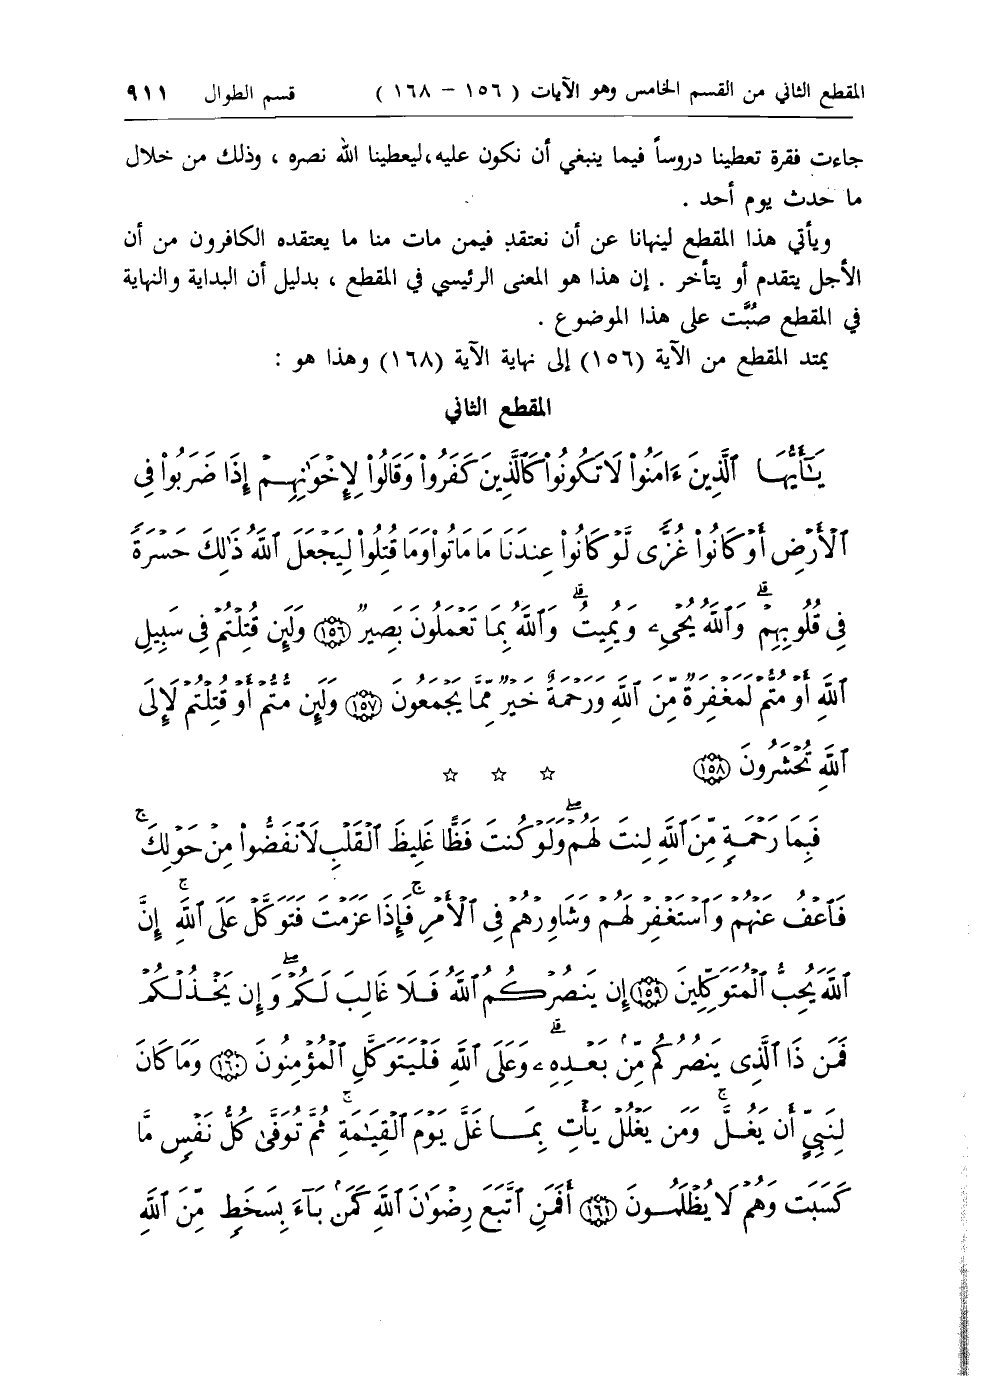 المقطع الثاني من القسم الخامس وهو الآيات ( ١٥٦ – ١٦٨ ) قسم الطوال ٩١١
جاءت فقرة تعطينا دروساً فيما ينبغي أن نكون عليه،ليعطينا الله نصره ، وذلك من خلال
ما حدث يوم أحد .
ويأتي هذا المقطع لينهانا عن أن نعتقد فيمن مات منا ما يعتقده الكافرون من أن
الأجل يتقدم أو يتأخر . إن هذا هو المعنى الرئيسي في المقطع ، بدليل أن البداية والنهاية
في المقطع صُبَّت على هذا الموضوع .
يمتد المقطع من الآية (١٥٦) إلى نهاية الآية (١٦٨) وهذا هو :
المقطع الثاني
يَـٰٓأَيُّهَا ٱلَّذِينَ ءَامَنُوا۟ لَا تَكُونُوا۟ كَٱلَّذِينَ كَفَرُوا۟ وَقَالُوا۟ لِإِخْوَٰنِهِمْ إِذَا ضَرَبُوا۟ فِى
ٱلْأَرْضِ أَوْ كَانُوا۟ غُزًّى لَّوْ كَانُوا۟ عِندَنَا مَا مَاتُوا۟ وَمَا قُتِلُوا۟ لِيَجْعَلَ ٱللَّهُ ذَٰلِكَ حَسْرَةً
فِى قُلُوبِهِمْ ۗ وَٱللَّهُ يُحْىِۦ وَيُمِيتُ ۗ وَٱللَّهُ بِمَا تَعْمَلُونَ بَصِيرٌ ۝١٥٦ وَلَئِن قُتِلْتُمْ فِى سَبِيلِ
ٱللَّهِ أَوْ مُتُّمْ لَمَغْفِرَةٌ مِّنَ ٱللَّهِ وَرَحْمَةٌ خَيْرٌ مِّمَّا يَجْمَعُونَ ۝١٥٧ وَلَئِن مُّتُّمْ أَوْ قُتِلْتُمْ لَإِلَى
ٱللَّهِ تُحْشَرُونَ ۝١٥٨ ☆ ☆ ☆
فَبِمَا رَحْمَةٍ مِّنَ ٱللَّهِ لِنتَ لَهُمْ ۖ وَلَوْ كُنتَ فَظًّا غَلِيظَ ٱلْقَلْبِ لَٱنفَضُّوا۟ مِنْ حَوْلِكَ ۚ
فَٱعْفُ عَنْهُمْ وَٱسْتَغْفِرْ لَهُمْ وَشَاوِرْهُمْ فِى ٱلْأَمْرِ ۚ فَإِذَا عَزَمْتَ فَتَوَكَّلْ عَلَى ٱللَّهِ ۚ إِنَّ
ٱللَّهَ يُحِبُّ ٱلْمُتَوَكِّلِينَ ۝١٥٩ إِن يَنصُرْكُمُ ٱللَّهُ فَلَا غَالِبَ لَكُمْ ۖ وَإِن يَخْذُلْكُمْ
فَمَن ذَا ٱلَّذِى يَنصُرُكُم مِّنۢ بَعْدِهِۦ ۗ وَعَلَى ٱللَّهِ فَلْيَتَوَكَّلِ ٱلْمُؤْمِنُونَ ۝١٦٠ وَمَا كَانَ
لِنَبِىٍّ أَن يَغُلَّ ۚ وَمَن يَغْلُلْ يَأْتِ بِمَا غَلَّ يَوْمَ ٱلْقِيَـٰمَةِ ۚ ثُمَّ تُوَفَّىٰ كُلُّ نَفْسٍ مَّا
كَسَبَتْ وَهُمْ لَا يُظْلَمُونَ ۝١٦١ أَفَمَنِ ٱتَّبَعَ رِضْوَٰنَ ٱللَّهِ كَمَنۢ بَآءَ بِسَخَطٍ مِّنَ ٱللَّهِ